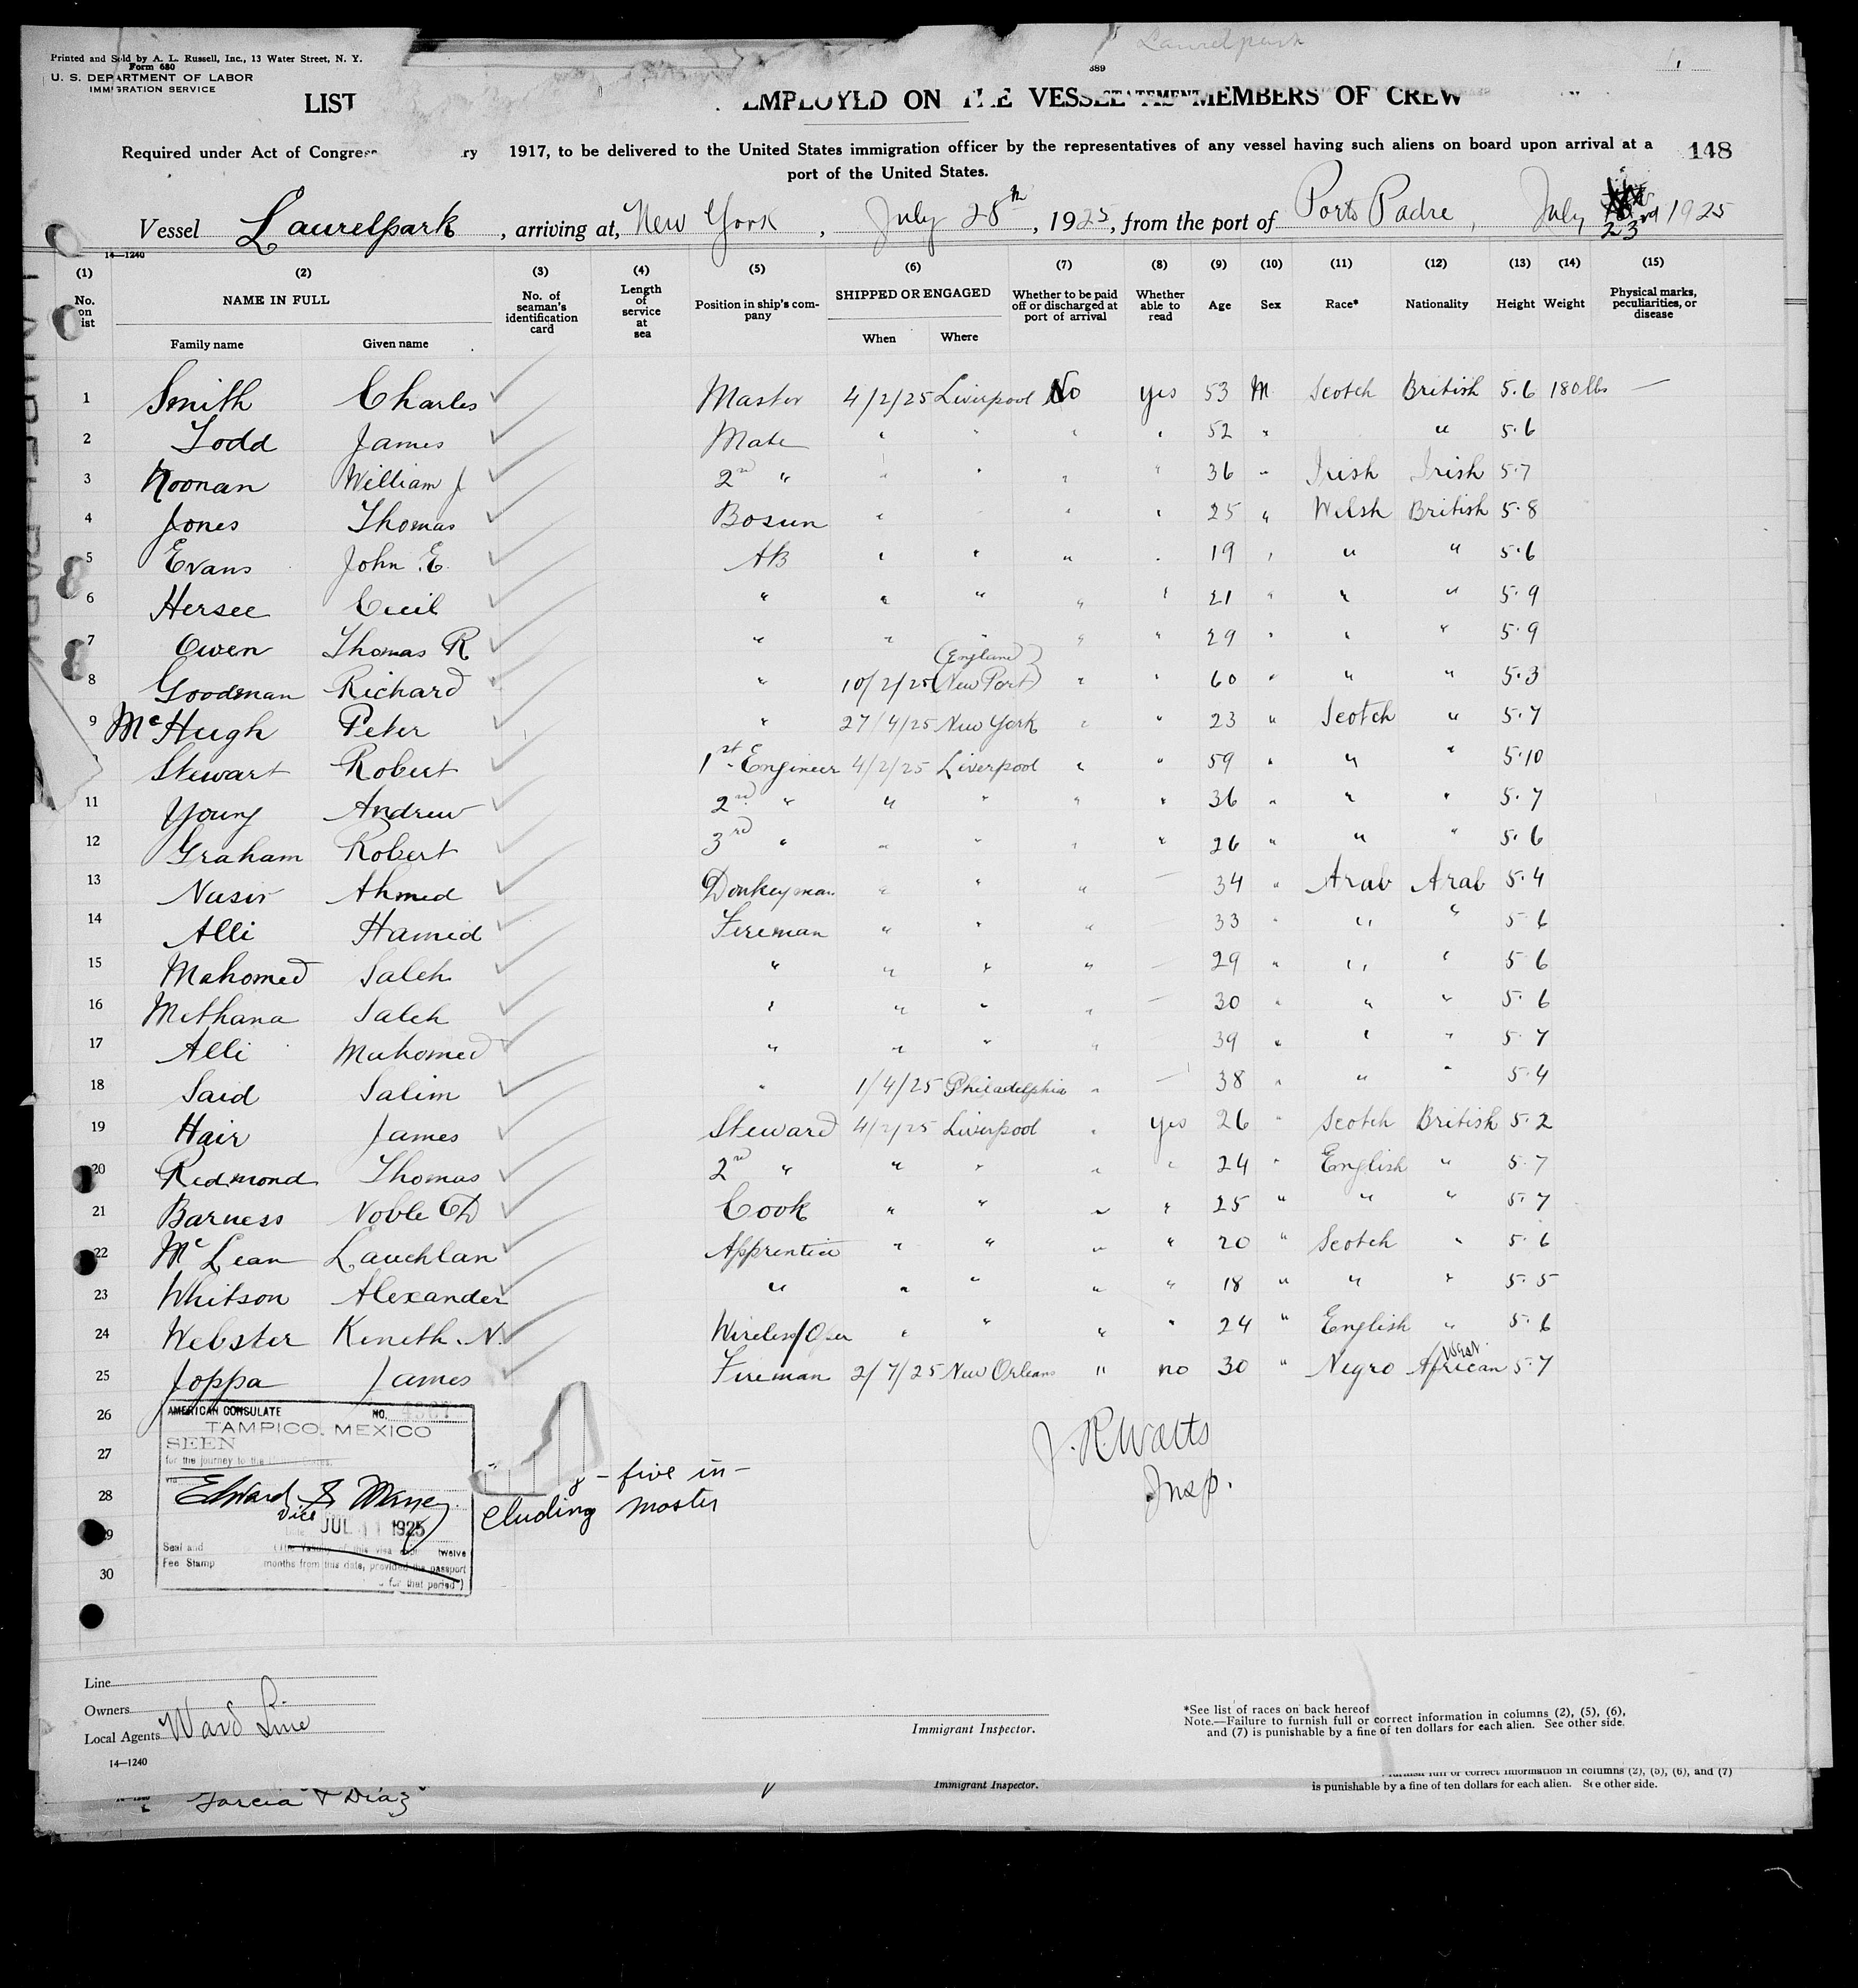 Laurelpark
Printed and Sold by A. L. Russell, Inc., 13 Water Street, N. Y.
Form 680
U. S. DEPARTMENT OF LABOR
IMMIGRATION SERVICE
689
1
LIST EMPLOYED ON THE VESSEL MEMBERS OF CREW
Required under Act of Congress 1917, to be delivered to the United States immigration officer by the representatives of any vessel having such aliens on board upon arrival at a
port of the United States.
148
Vessel Laurelpark, arriving at, New York, July 28th, 1925, from the port of Porto Padre, July 23rd 1925
14—1240
(1) (2) (3) (4) (5) (6) (7) (8) (9) (10) (11) (12) (13) (14) (15)
No. on list NAME IN FULL No. of seaman's identification card Length of service at sea Position in ship's company SHIPPED OR ENGAGED Whether to be paid off or discharged at port of arrival Whether able to read Age Sex Race* Nationality Height Weight Physical marks, peculiarities, or disease
Family name Given name When Where
1 Smith Charles Master 4/2/25 Liverpool No yes 53 M Scotch British 5.6 180 lbs —
2 Todd James Mate " " " " 52 " " 5.6
3 Noonan William J 2nd " " " " " 36 " Irish Irish 5.7
4 Jones Thomas Bosun " " " 25 " Welsh British 5.8
5 Evans John E. AB " " " " 19 " " " 5.6
6 Hersee Cecil " " " " " 21 " " " 5.9
7 Owen Thomas R " " " " " 29 " " " 5.9
8 Goodsman Richard " 10/2/25 (England) (New Port) " " 60 " " " 5.3
9 McHugh Peter " 27/4/25 New York " " 23 " Scotch " 5.7
Stewart Robert 1st Engineer 4/2/25 Liverpool " " 59 " " " 5.10
11 Young Andrew 2nd " " " " " 36 " " " 5.7
12 Graham Robert 3rd " " " " " 26 " " " 5.6
13 Nasir Ahmed Donkeyman " " " — 34 " Arab Arab 5.4
14 Alli Hamid Fireman " " " 33 " " " 5 6
15 Mahomed Saleh " " " " — 29 " " " 5 6
16 Methana Saleh " " " " — 30 " " " 5.6
17 Alli Muhomed " " " " — 39 " " " 5.7
18 Said Salim " 1/4/25 Philadelphia " — 38 " " " 5.4
19 Hair James Steward 4/2/25 Liverpool " yes 26 " Scotch British 5.2
20 Redmond Thomas 2nd " " " " " 24 " English " 5.7
21 Barness Noble D Cook " " " " 25 " " " 5.7
22 McLean Lauchlan Apprentice " " " " 20 " Scotch " 5.6
23 Whitson Alexander " " " " " 18 " " " 5.5
24 Webster Keneth. N. Wireless/Oper " " " " 24 " English " 5.6
25 Joppa James Fireman 2/7/25 New Orleans " no 30 " Negro West African 5.7
26
27
28
29
30
AMERICAN CONSULATE NO.
TAMPICO, MEXICO
SEEN
for the journey to the United States,
via
Edward S. Maney
Vice
JUL 11 1925
Seal and
Fee Stamp
(The validity of this visa twelve
months from this date, provided the passport
for that period)
- five in-
cluding master
J. R. Watts
Insp.
Line
Owners
Local Agents Ward Line
14—1240
Immigrant Inspector.
*See list of races on back hereof
Note.—Failure to furnish full or correct information in columns (2), (5), (6),
and (7) is punishable by a fine of ten dollars for each alien. See other side.
Garcia & Diaz
Immigrant Inspector.
furnish full or correct information in columns (2), (5), (6), and (7)
is punishable by a fine of ten dollars for each alien. See other side.
LAURELPARK